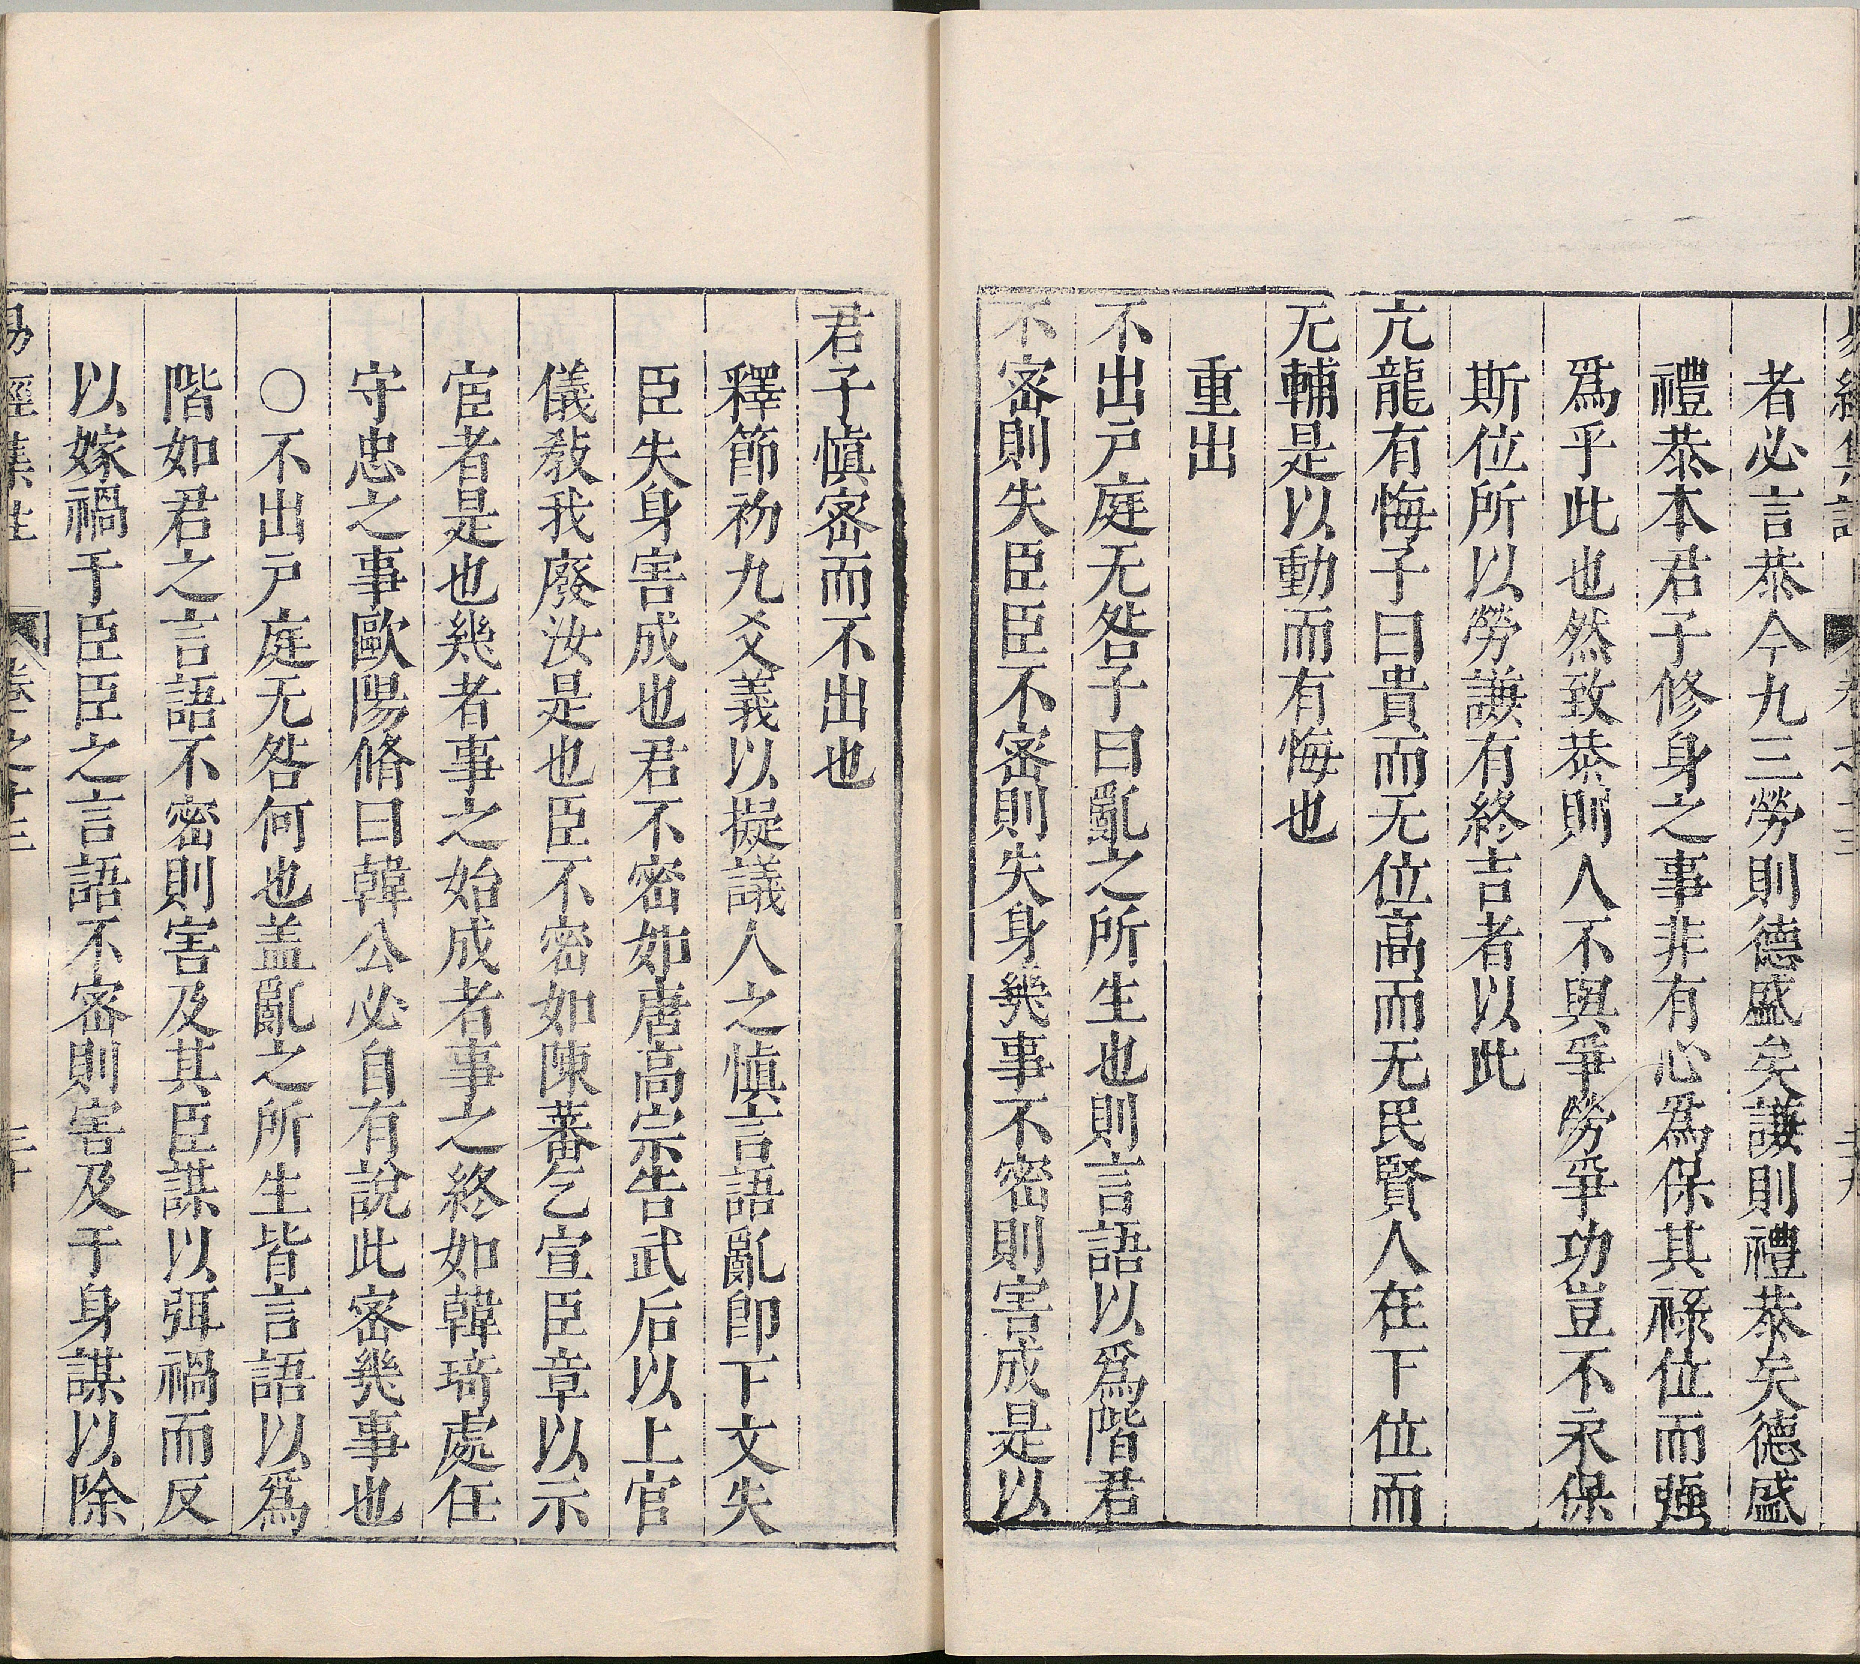 易經集註 卷之十三 二十九
者必言恭今九三勞則德盛矣謙則禮恭矣德盛
禮恭本君子修身之事非有心爲保其祿位而強
爲乎此也然致恭則人不與爭勞爭功豈不永保
斯位所以勞謙有終吉者以此
亢龍有悔子曰貴而无位高而无民賢人在下位而
无輔是以動而有悔也
重出
不出戸庭无咎子曰亂之所生也則言語以爲階君
不密則失臣臣不密則失身幾事不密則害成是以
君子慎密而不出也
釋節初九爻義以擬議人之慎言語亂即下文失
臣失身害成也君不密如唐高宗告武后以上官
儀教我廢汝是也臣不密如陳蕃乞宣臣章以示
宦者是也幾者事之始成者事之終如韓琦處任
守忠之事歐陽脩曰韓公必自有說此密幾事也
○不出戸庭无咎何也盖亂之所生皆言語以爲
階如君之言語不密則害及其臣謀以弭禍而反
以嫁禍于臣臣之言語不密則害及于身謀以除
易經集註 卷之十三 三十